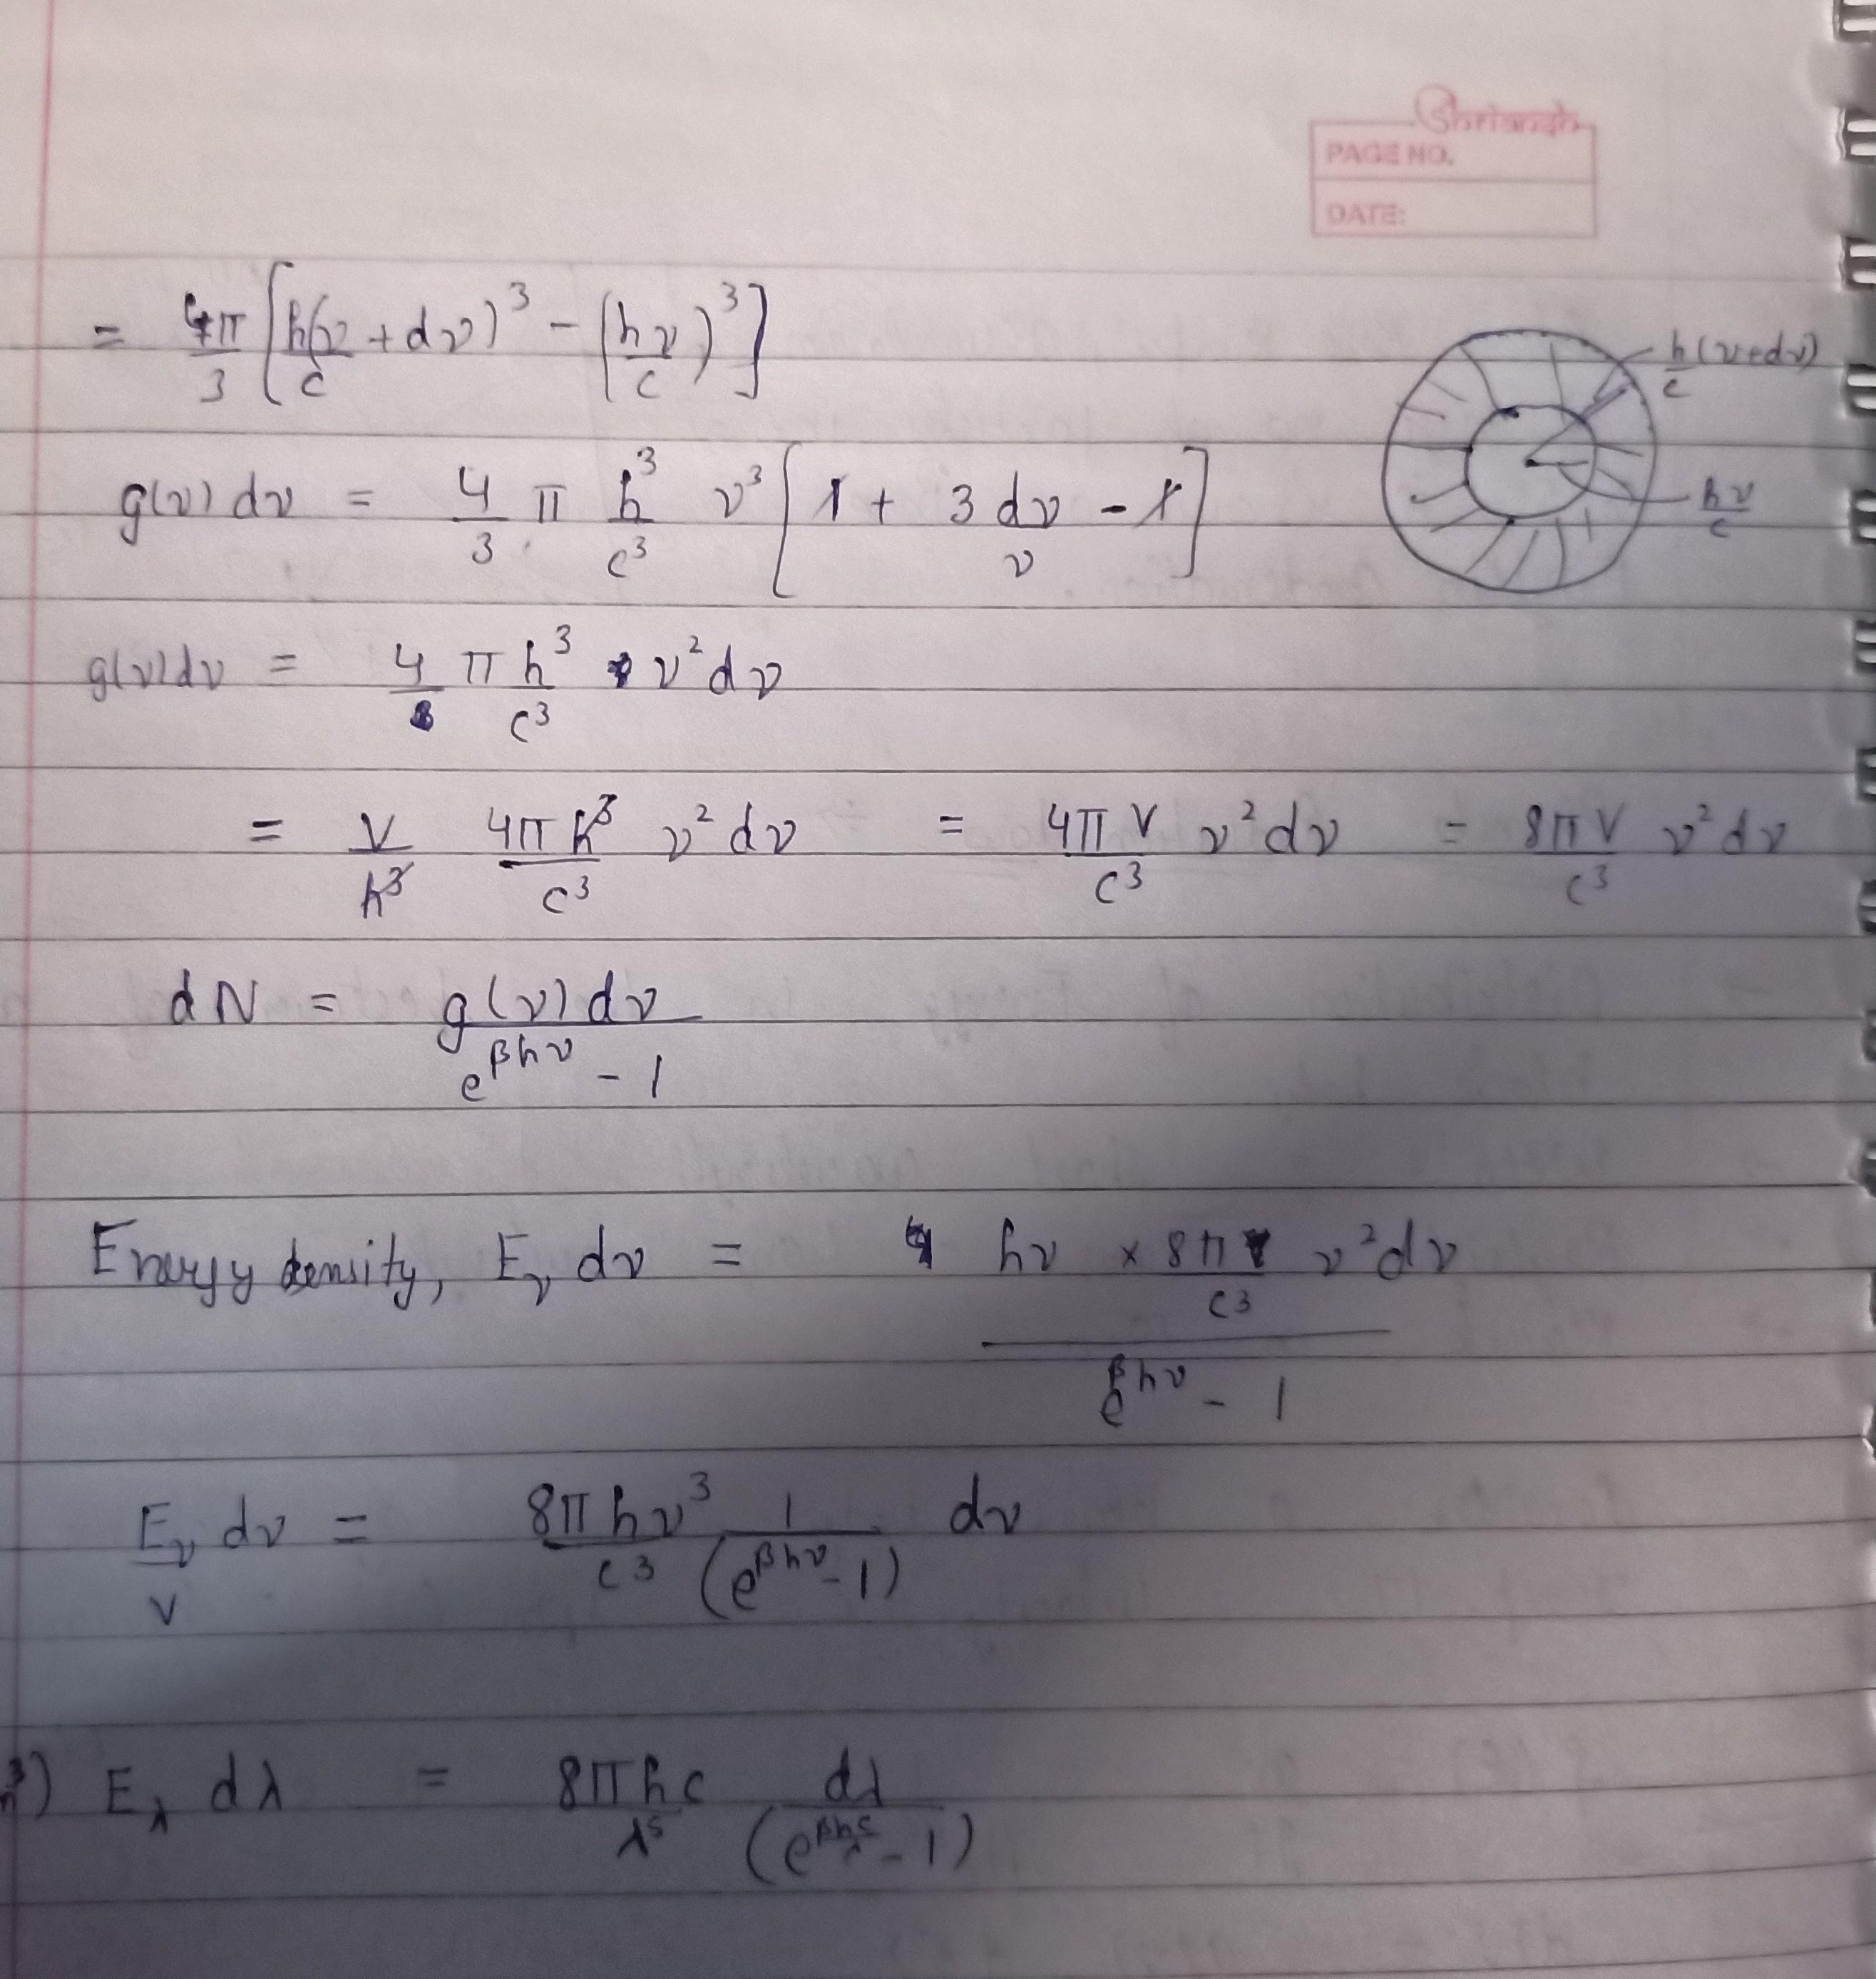 Shriansh
PAGE NO.
DATE:
= 4π/3 [(h(ν + dν)/c)³ − (hν/c)³]
h(ν+dν)/c
hν/c
g(ν) dν = 4/3 π h³/c³ ν³ [1 + 3 dν/ν − 1]
g(ν)dν = 4 π h³/c³ ν² dν
= V/h³ 4π h³/c³ ν² dν = 4π V/c³ ν² dν = 8π V/c³ ν² dν
dN = g(ν) dν / e^βhν − 1
Energy density, E_ν dν = hν × 8π/c³ ν² dν / e^βhν − 1
E_ν/V dν = 8π hν³/c³ 1/(e^βhν − 1) dν
E_λ dλ = 8π hc/λ⁵ dλ/(e^βhc/λ − 1)